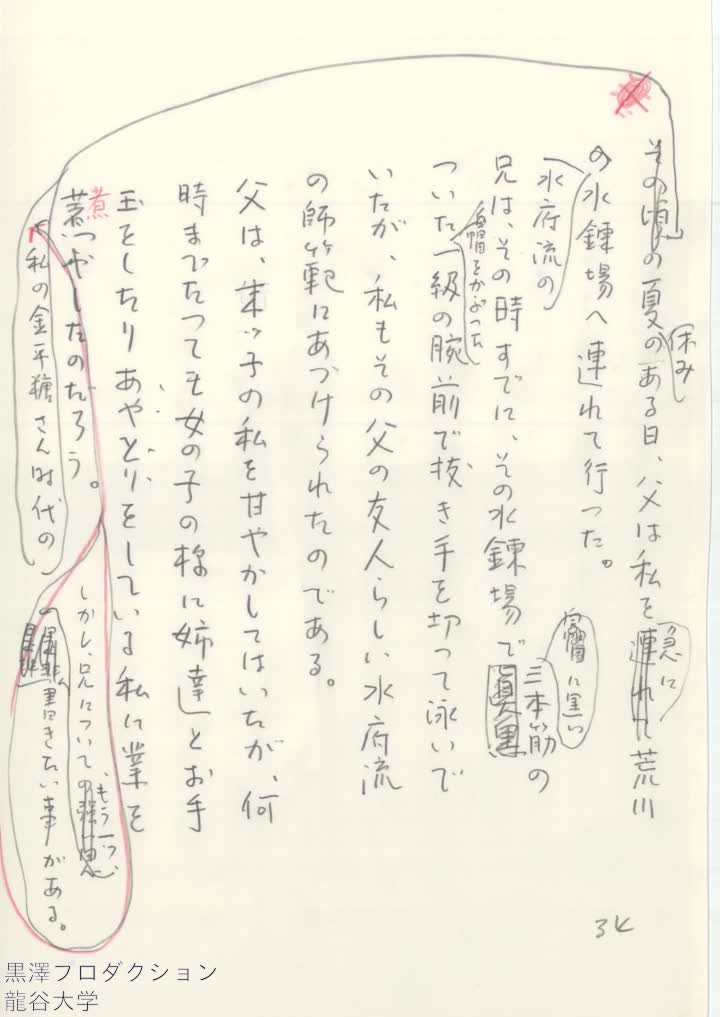 その頃の夏休みのある日、父は私を急に荒川
の水錬場へ連れて行った。
水府流の
兄は、その時すでに、その水錬場で三本筋の
帽に黒い
ついた帽をかぶった一級の腕前で抜き手を切って泳いで
いたが、私もその父の友人らしい水府流
の師範にあづけられたのである。
父は、末ッ子の私を甘やかしてはいたが、何
時までたつても女の子の様に姉達とお手
玉をしたりあやとりをしている私に業を
煮やしたのだろう。
私の金平糖さん時代の
しかし、兄についての、もう一つ
書きたい事がある。
3K
黒澤プロダクション
龍谷大学